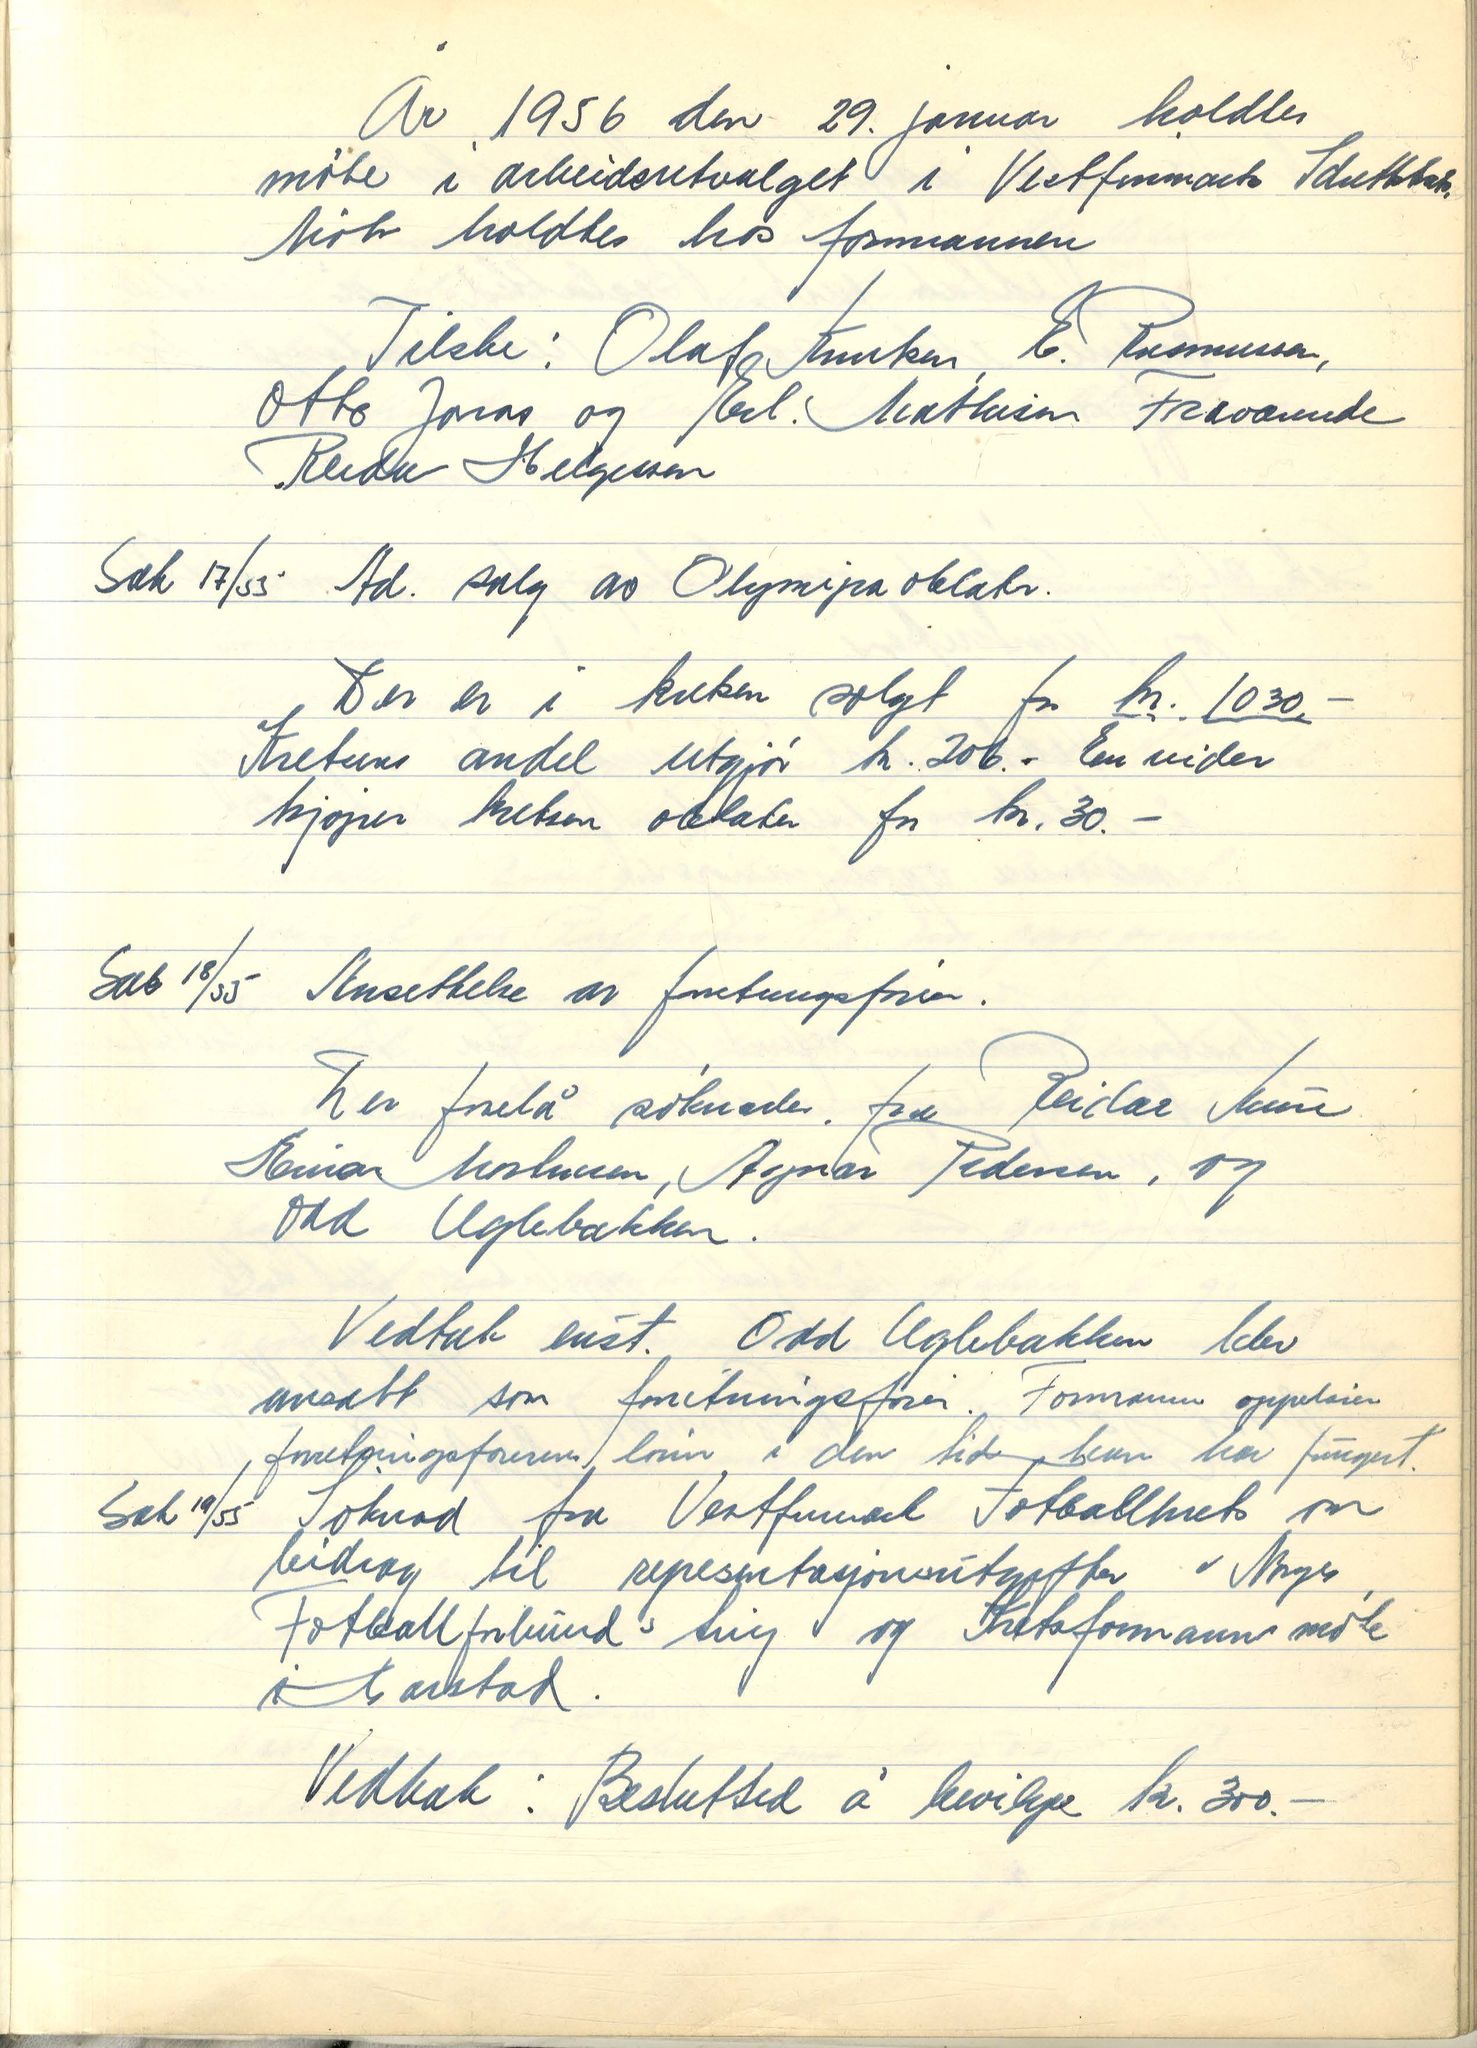 År 1956 den 29. januar holdtes
møte i arbeidsutvalget i Vestfinnmark Idrettskrets.
Møte holdtes hos formannen
Tilste: Olaf Knutsen, E. Rasmussen,
Otto Jonas og Erl. Mathisen Fraværende
Reidar Helgessen
Sak 17/55 Ad. salg av Olympia oblater.
Der er i kretsen solgt for kr. 1030.-
Kretsens andel utgjør kr. 206.- En vider
kjøper kretsen oblater for kr. 30.-
Sak 18/55 Ansettelse av forretningsfører.
Der forelå søknader fra Reidar
Einar Mortensen, Agnar Pedersen, og
Odd Uglebakken.
Vedtak enst. Odd Uglebakken blev
ansatt som forretningsfører. Formannen oppebærer
forretningsførerens lønn i den tid han har fungert.
Sak 19/55 Søknad fra Vestfinnmark Fotballkrets om
bidrag til representasjonsutgifter v Norges
Fotballforbund's ting og Kretsformanns møte
i Harstad.
Vedtak: Beslutted å bevilge kr. 300.-